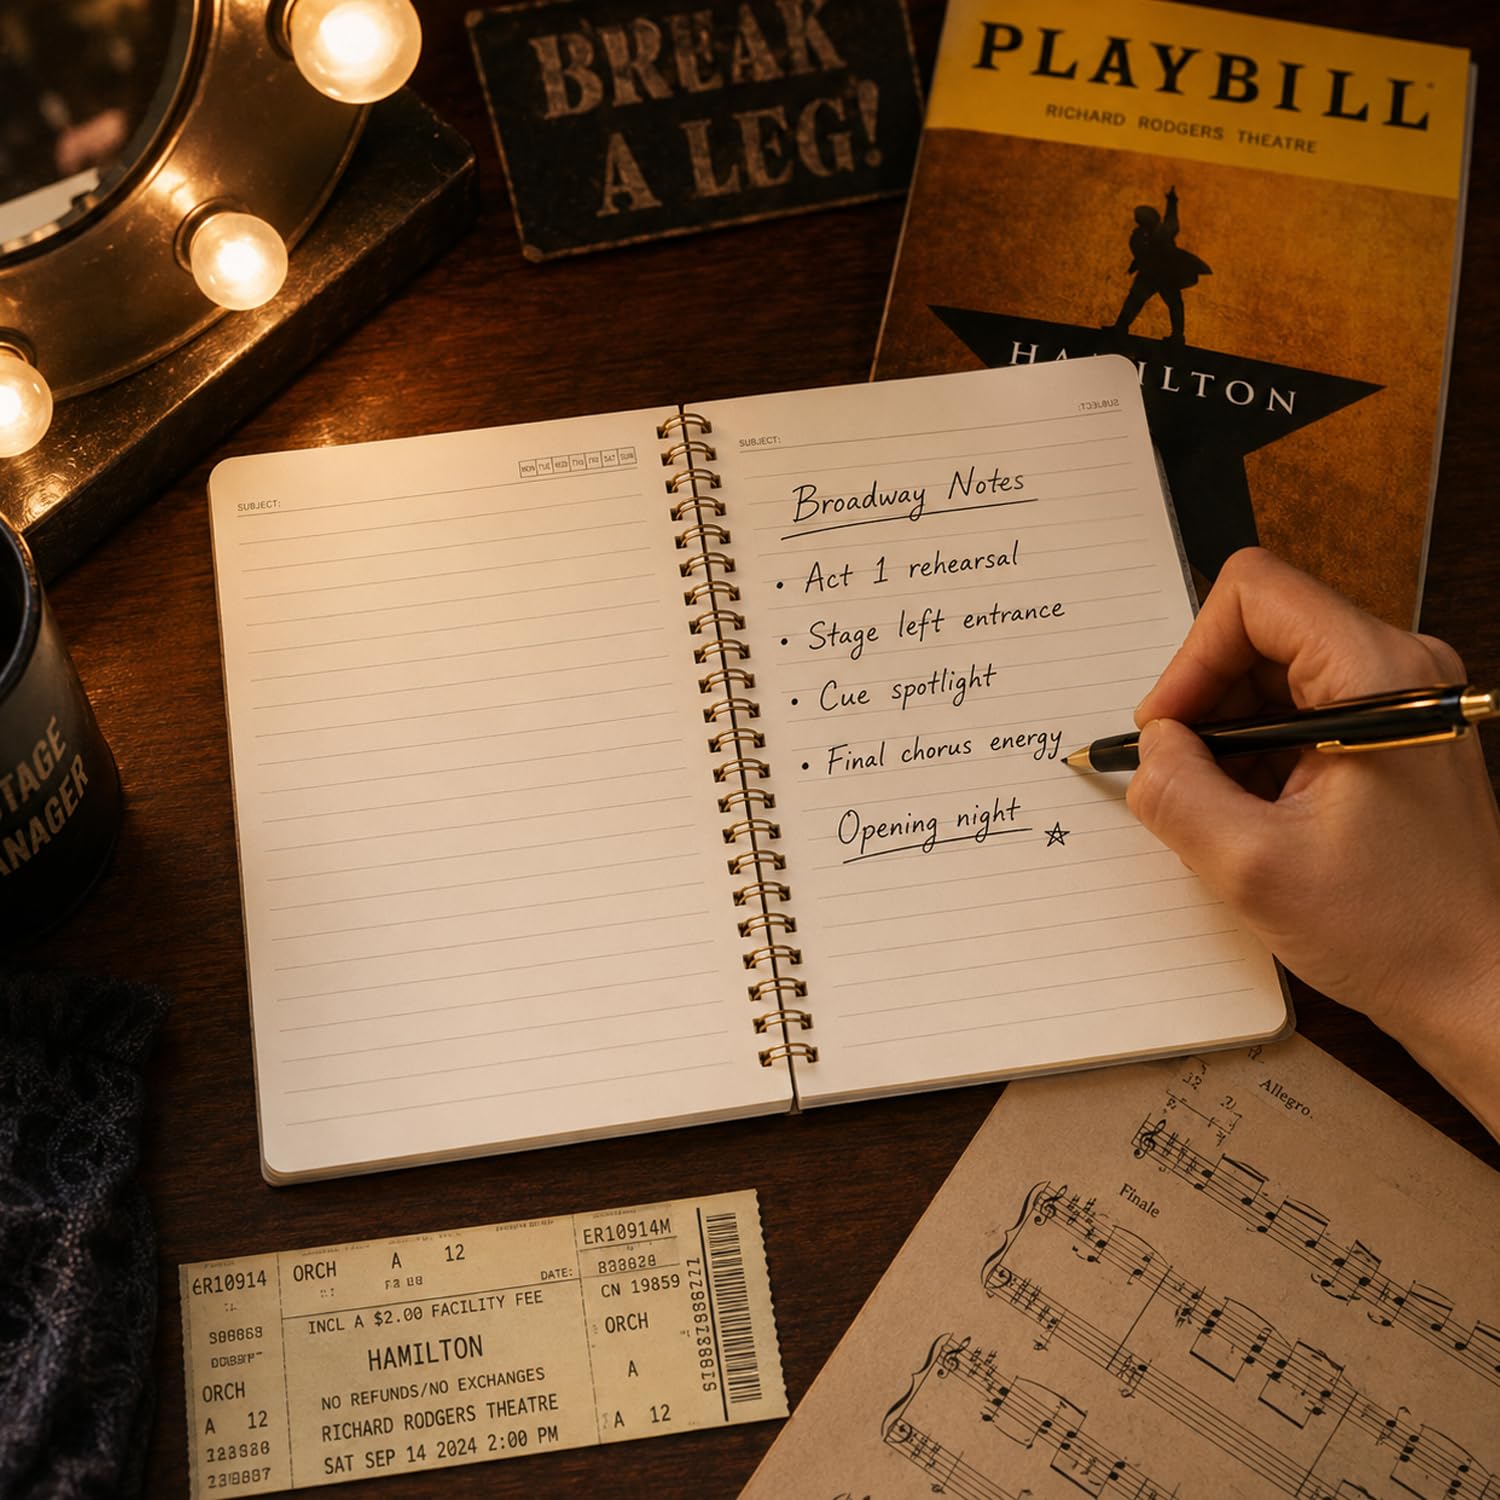 BREAK
A LEG!
PLAYBILL
RICHARD RODGERS THEATRE
HAMILTON
SUBJECT:
MON TUE WED THU FRI SAT SUN
SUBJECT:
Broadway Notes
• Act 1 rehearsal
• Stage left entrance
• Cue spotlight
• Final chorus energy
Opening night ☆
STAGE
MANAGER
Allegro.
Finale
6R10914
ORCH A 12
DATE:
INCL A $2.00 FACILITY FEE
HAMILTON
NO REFUNDS/NO EXCHANGES
RICHARD RODGERS THEATRE
SAT SEP 14 2024 2:00 PM
ORCH
A 12
ER10914M
CN 19859
ORCH
A
A 12